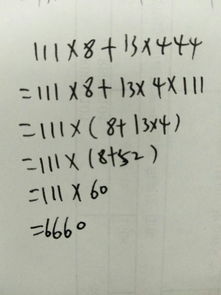 111×8+13×444
=111×8+13×4×111
=111×(8+13×4)
=111×(8+52)
=111×60
=6660